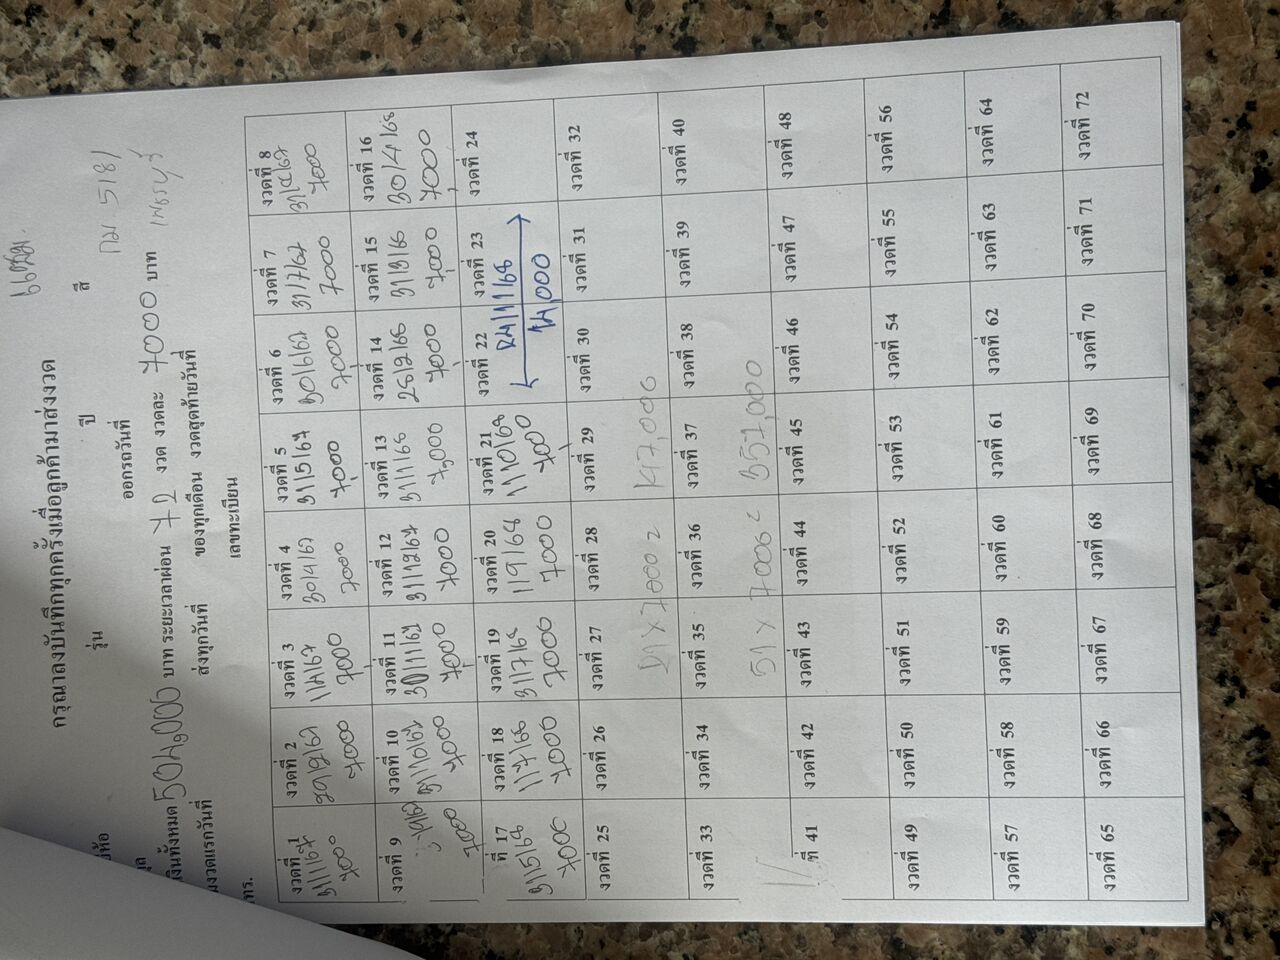 กรุณาลงบันทึกทุกครั้งเมื่อลูกค้ามาส่งงวด
รุ่น ปี สี กม 5181
ออกรถวันที่
เงินทั้งหมด 504,000 บาท ระยะเวลาผ่อน 72 งวด งวดละ 7000 บาท เพชรบุรี
งวดแรกวันที่ ส่งทุกวันที่ ของทุกเดือน งวดสุดท้ายวันที่
โทร. เลขทะเบียน
งวดที่ 1 งวดที่ 2 งวดที่ 3 งวดที่ 4 งวดที่ 5 งวดที่ 6 งวดที่ 7 งวดที่ 8
31/1/67 29/2/67 1/4/67 30/4/67 31/5/67 30/6/67 31/7/67 31/8/67
7000 7000 7000 7000 7,000 7000 7000 7000
งวดที่ 9 งวดที่ 10 งวดที่ 11 งวดที่ 12 งวดที่ 13 งวดที่ 14 งวดที่ 15 งวดที่ 16
31/10/67 30/11/67 31/12/67 31/1/68 28/2/68 31/3/68 30/4/68
7000 7000 7,000 7000 7,000 7,000 7,000 7,000
ที่ 17 งวดที่ 18 งวดที่ 19 งวดที่ 20 งวดที่ 21 งวดที่ 22 งวดที่ 23 งวดที่ 24
31/5/68 1/7/68 31/7/68 1/9/68 1/10/68 24/11/68
7000 7000 7000 7000 7000 14,000
งวดที่ 25 งวดที่ 26 งวดที่ 27 งวดที่ 28 งวดที่ 29 งวดที่ 30 งวดที่ 31 งวดที่ 32
21 x 7000 = 147,000
งวดที่ 33 งวดที่ 34 งวดที่ 35 งวดที่ 36 งวดที่ 37 งวดที่ 38 งวดที่ 39 งวดที่ 40
51 x 7000 = 357,000
ที่ 41 งวดที่ 42 งวดที่ 43 งวดที่ 44 งวดที่ 45 งวดที่ 46 งวดที่ 47 งวดที่ 48
งวดที่ 49 งวดที่ 50 งวดที่ 51 งวดที่ 52 งวดที่ 53 งวดที่ 54 งวดที่ 55 งวดที่ 56
งวดที่ 57 งวดที่ 58 งวดที่ 59 งวดที่ 60 งวดที่ 61 งวดที่ 62 งวดที่ 63 งวดที่ 64
งวดที่ 65 งวดที่ 66 งวดที่ 67 งวดที่ 68 งวดที่ 69 งวดที่ 70 งวดที่ 71 งวดที่ 72